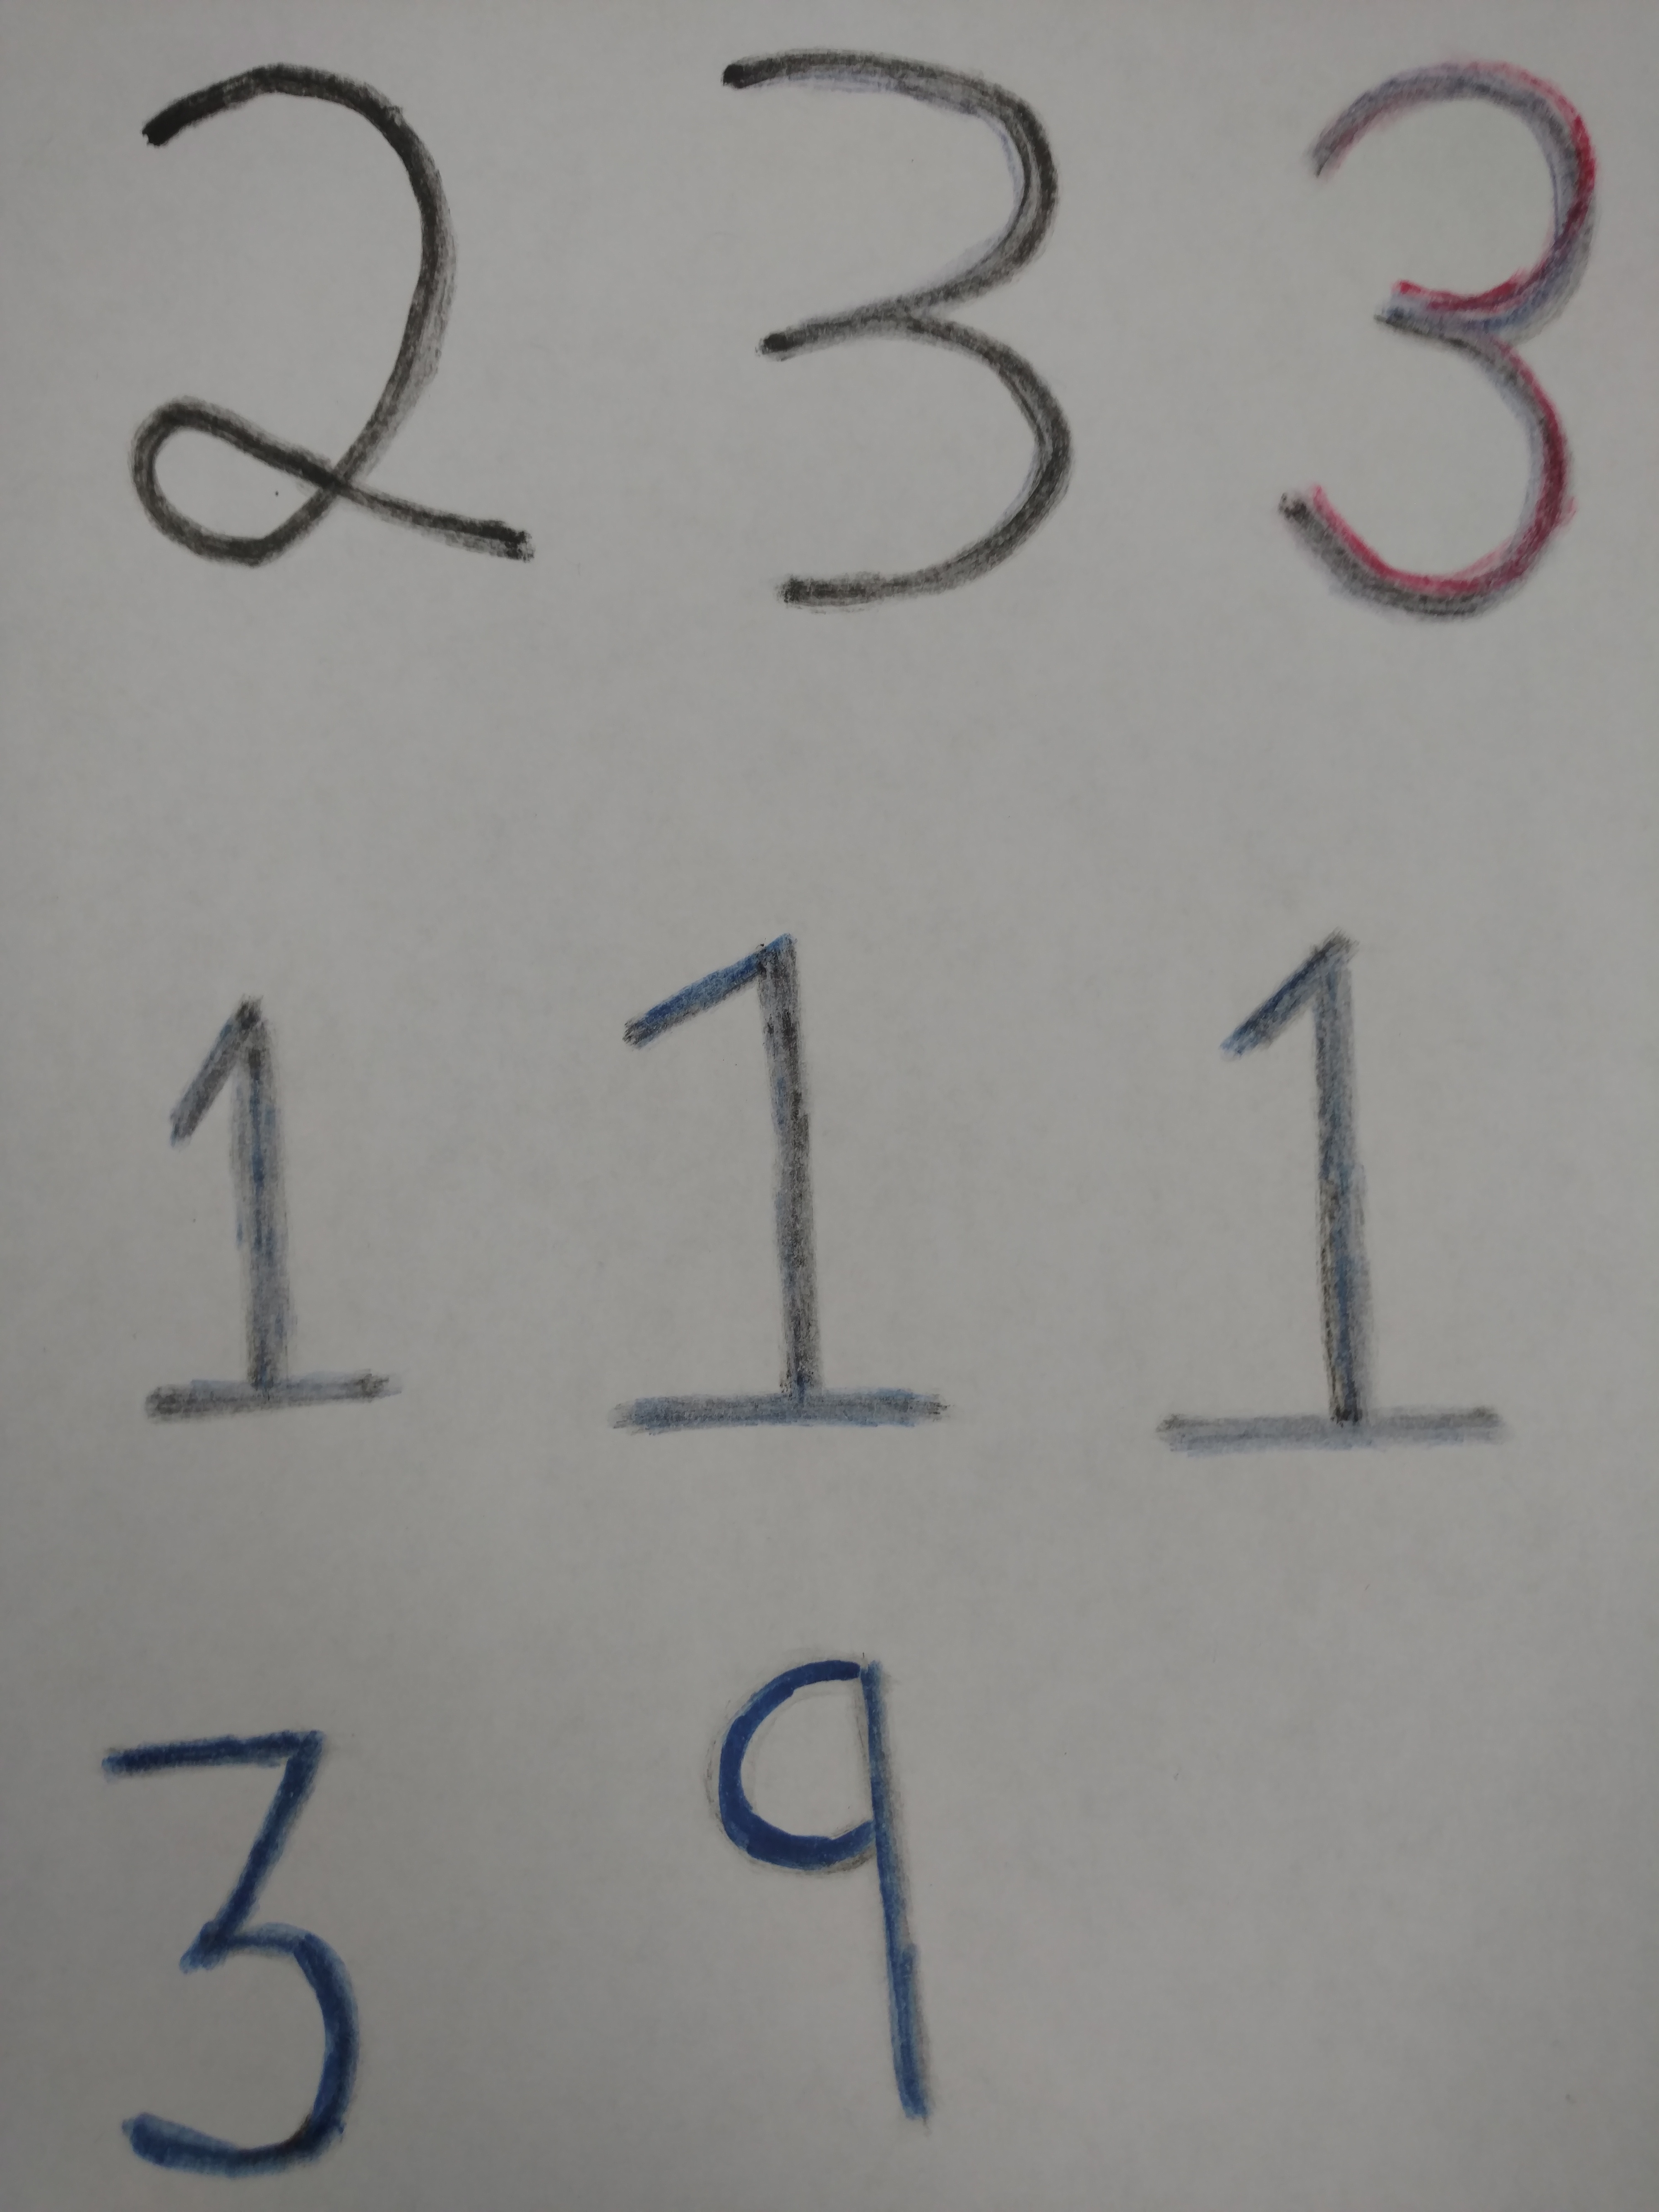 2 3 3
1 1 1
3 9